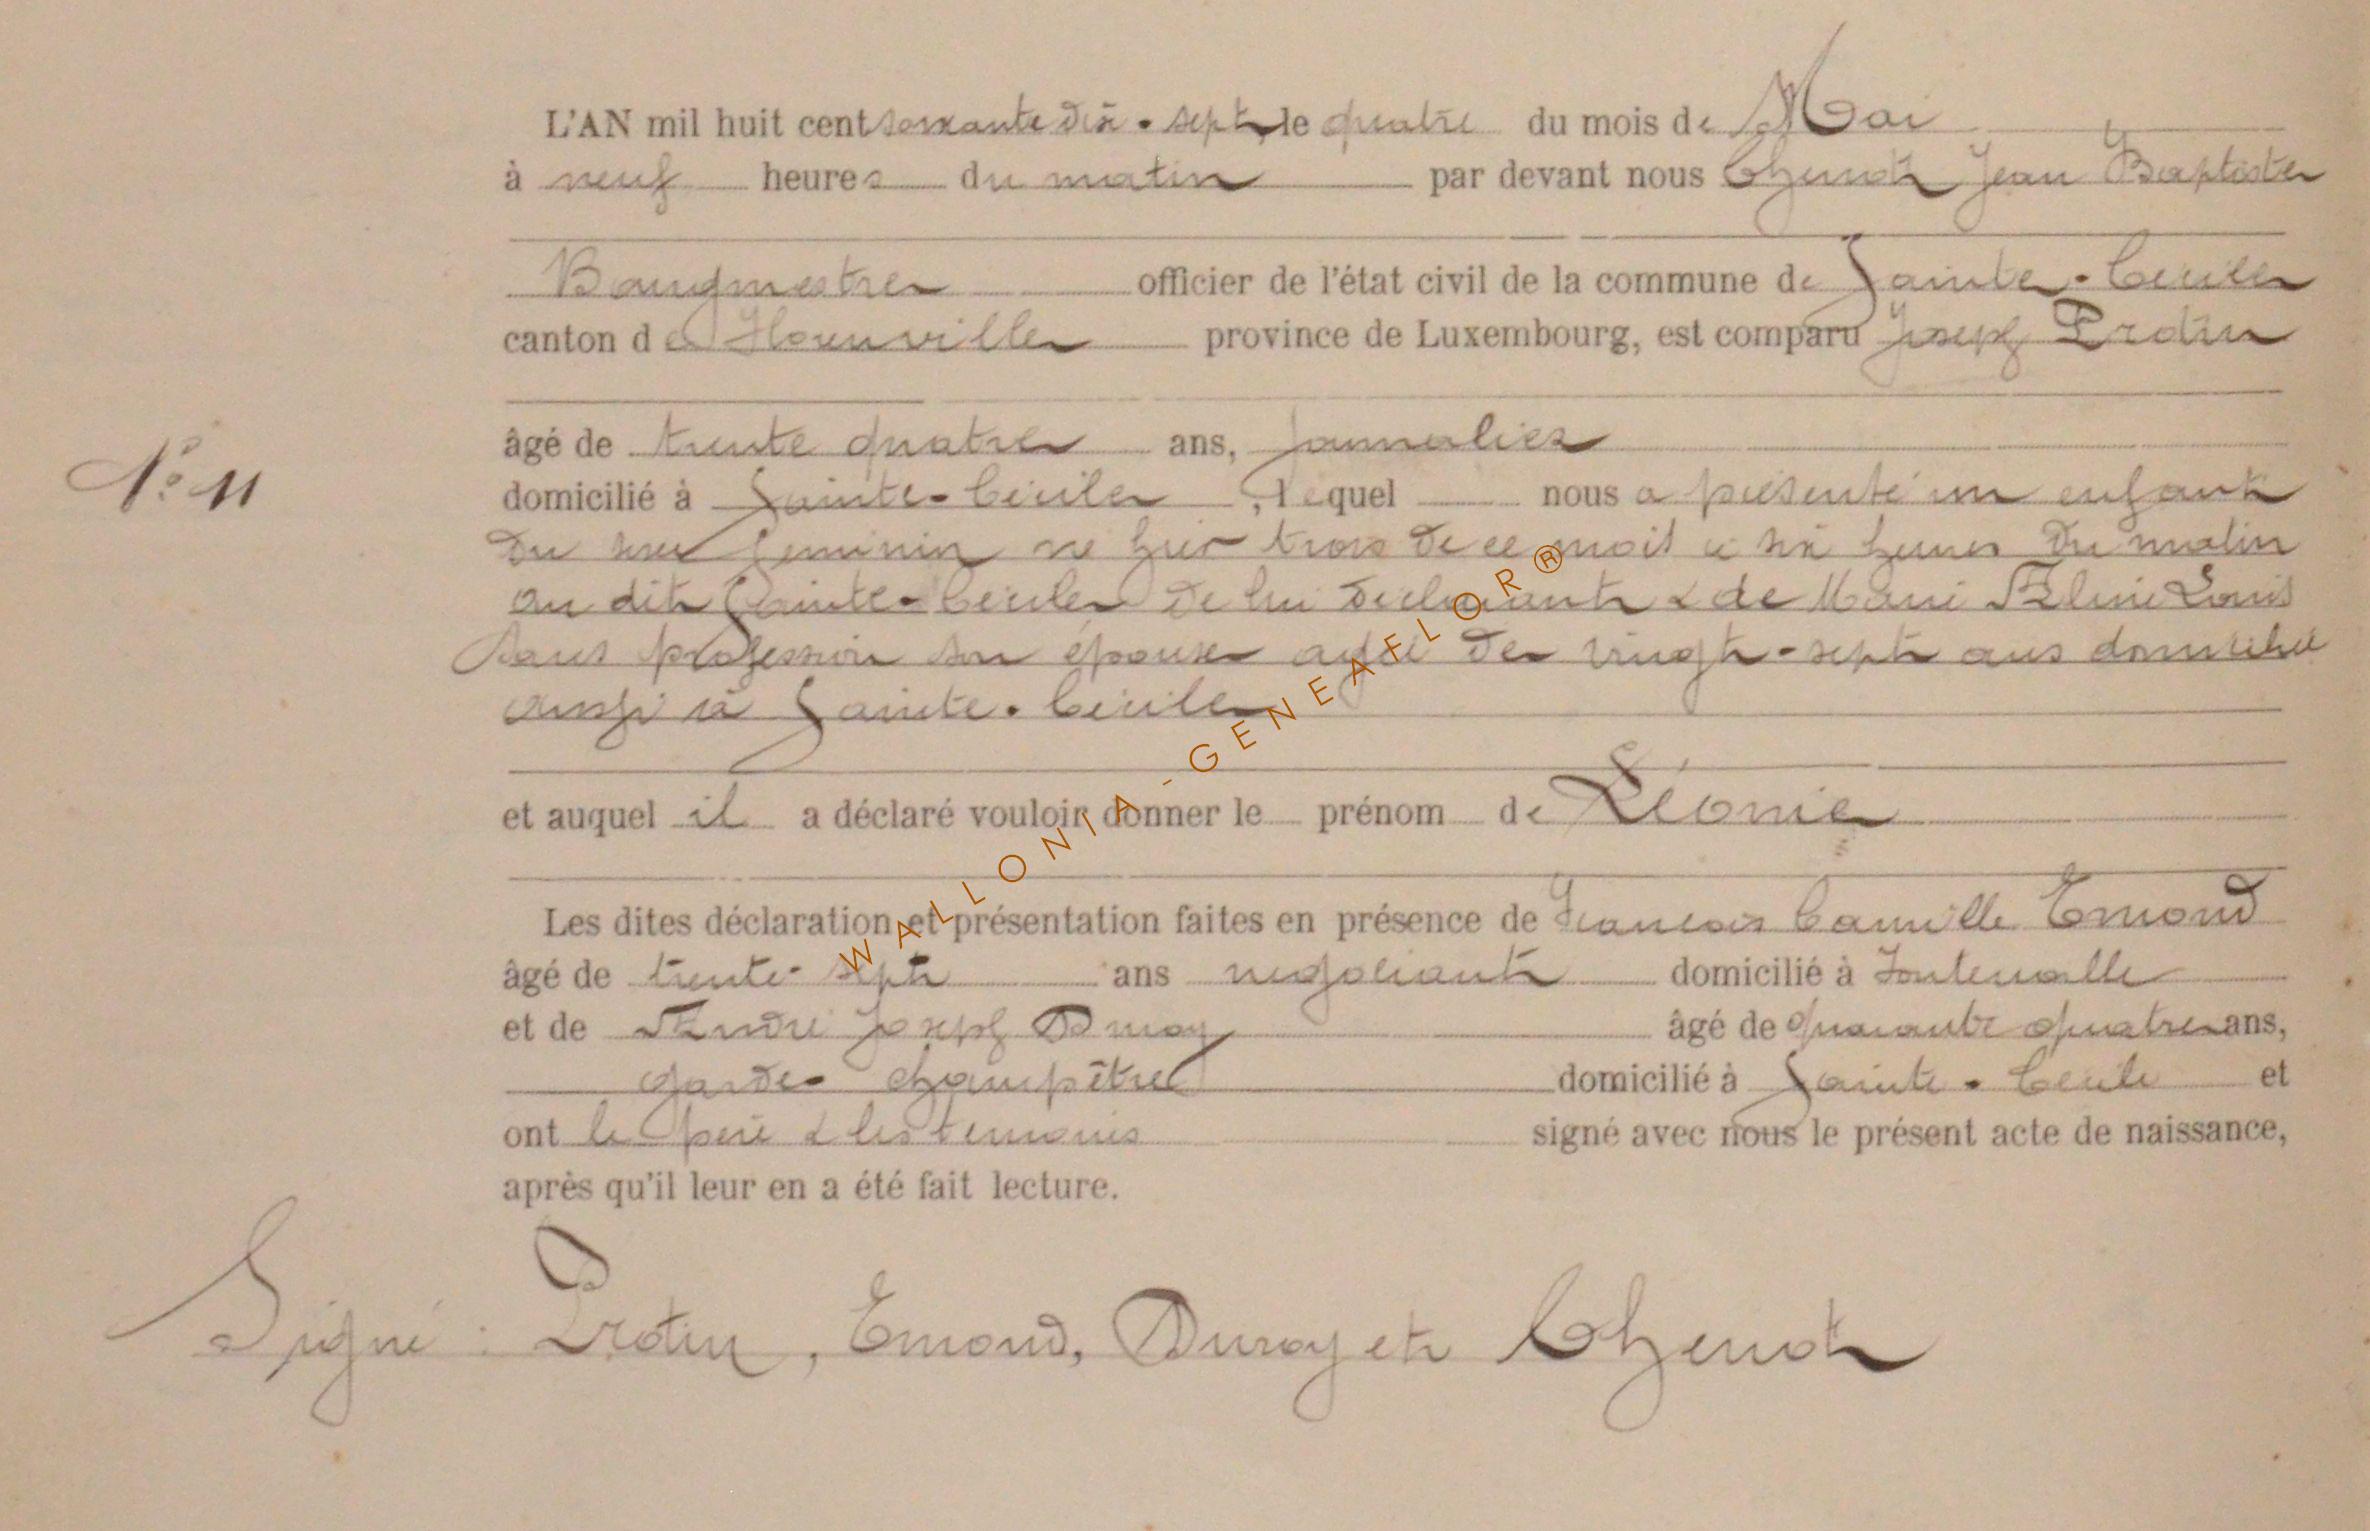 L'AN mil huit cent soixante dix-sept, le quatre du mois de Mai
à neuf heures du matin par devant nous Chenot Jean Baptiste
Bourgmestre officier de l'état civil de la commune de Sainte-Cécile
canton de Florenville province de Luxembourg, est comparu Joseph Protin
âgé de trente quatre ans, journalier
N° 11
domicilié à Sainte-Cécile, lequel nous a présenté un enfant
du sexe feminin né hier trois de ce mois à six heures du matin
au dit Sainte-Cécile de lui déclarant & de Marie Louis
sans profession son épouse agée de vingt-sept ans domiciliée
aussi à Sainte-Cécile
et auquel il a déclaré vouloir donner le prénom de Léonie
Les dites déclaration et présentation faites en présence de François Camille Emond
âgé de trente-sept ans négociant domicilié à Fontenoille
et de André Joseph Duroy âgé de quarante quatre ans,
garde-champêtre domicilié à Sainte-Cécile et
ont le père & les témoins signé avec nous le présent acte de naissance,
après qu'il leur en a été fait lecture.
Signé : Protin, Emond, Duroy et Chenot
WALLONIA-GENEAFLOR®